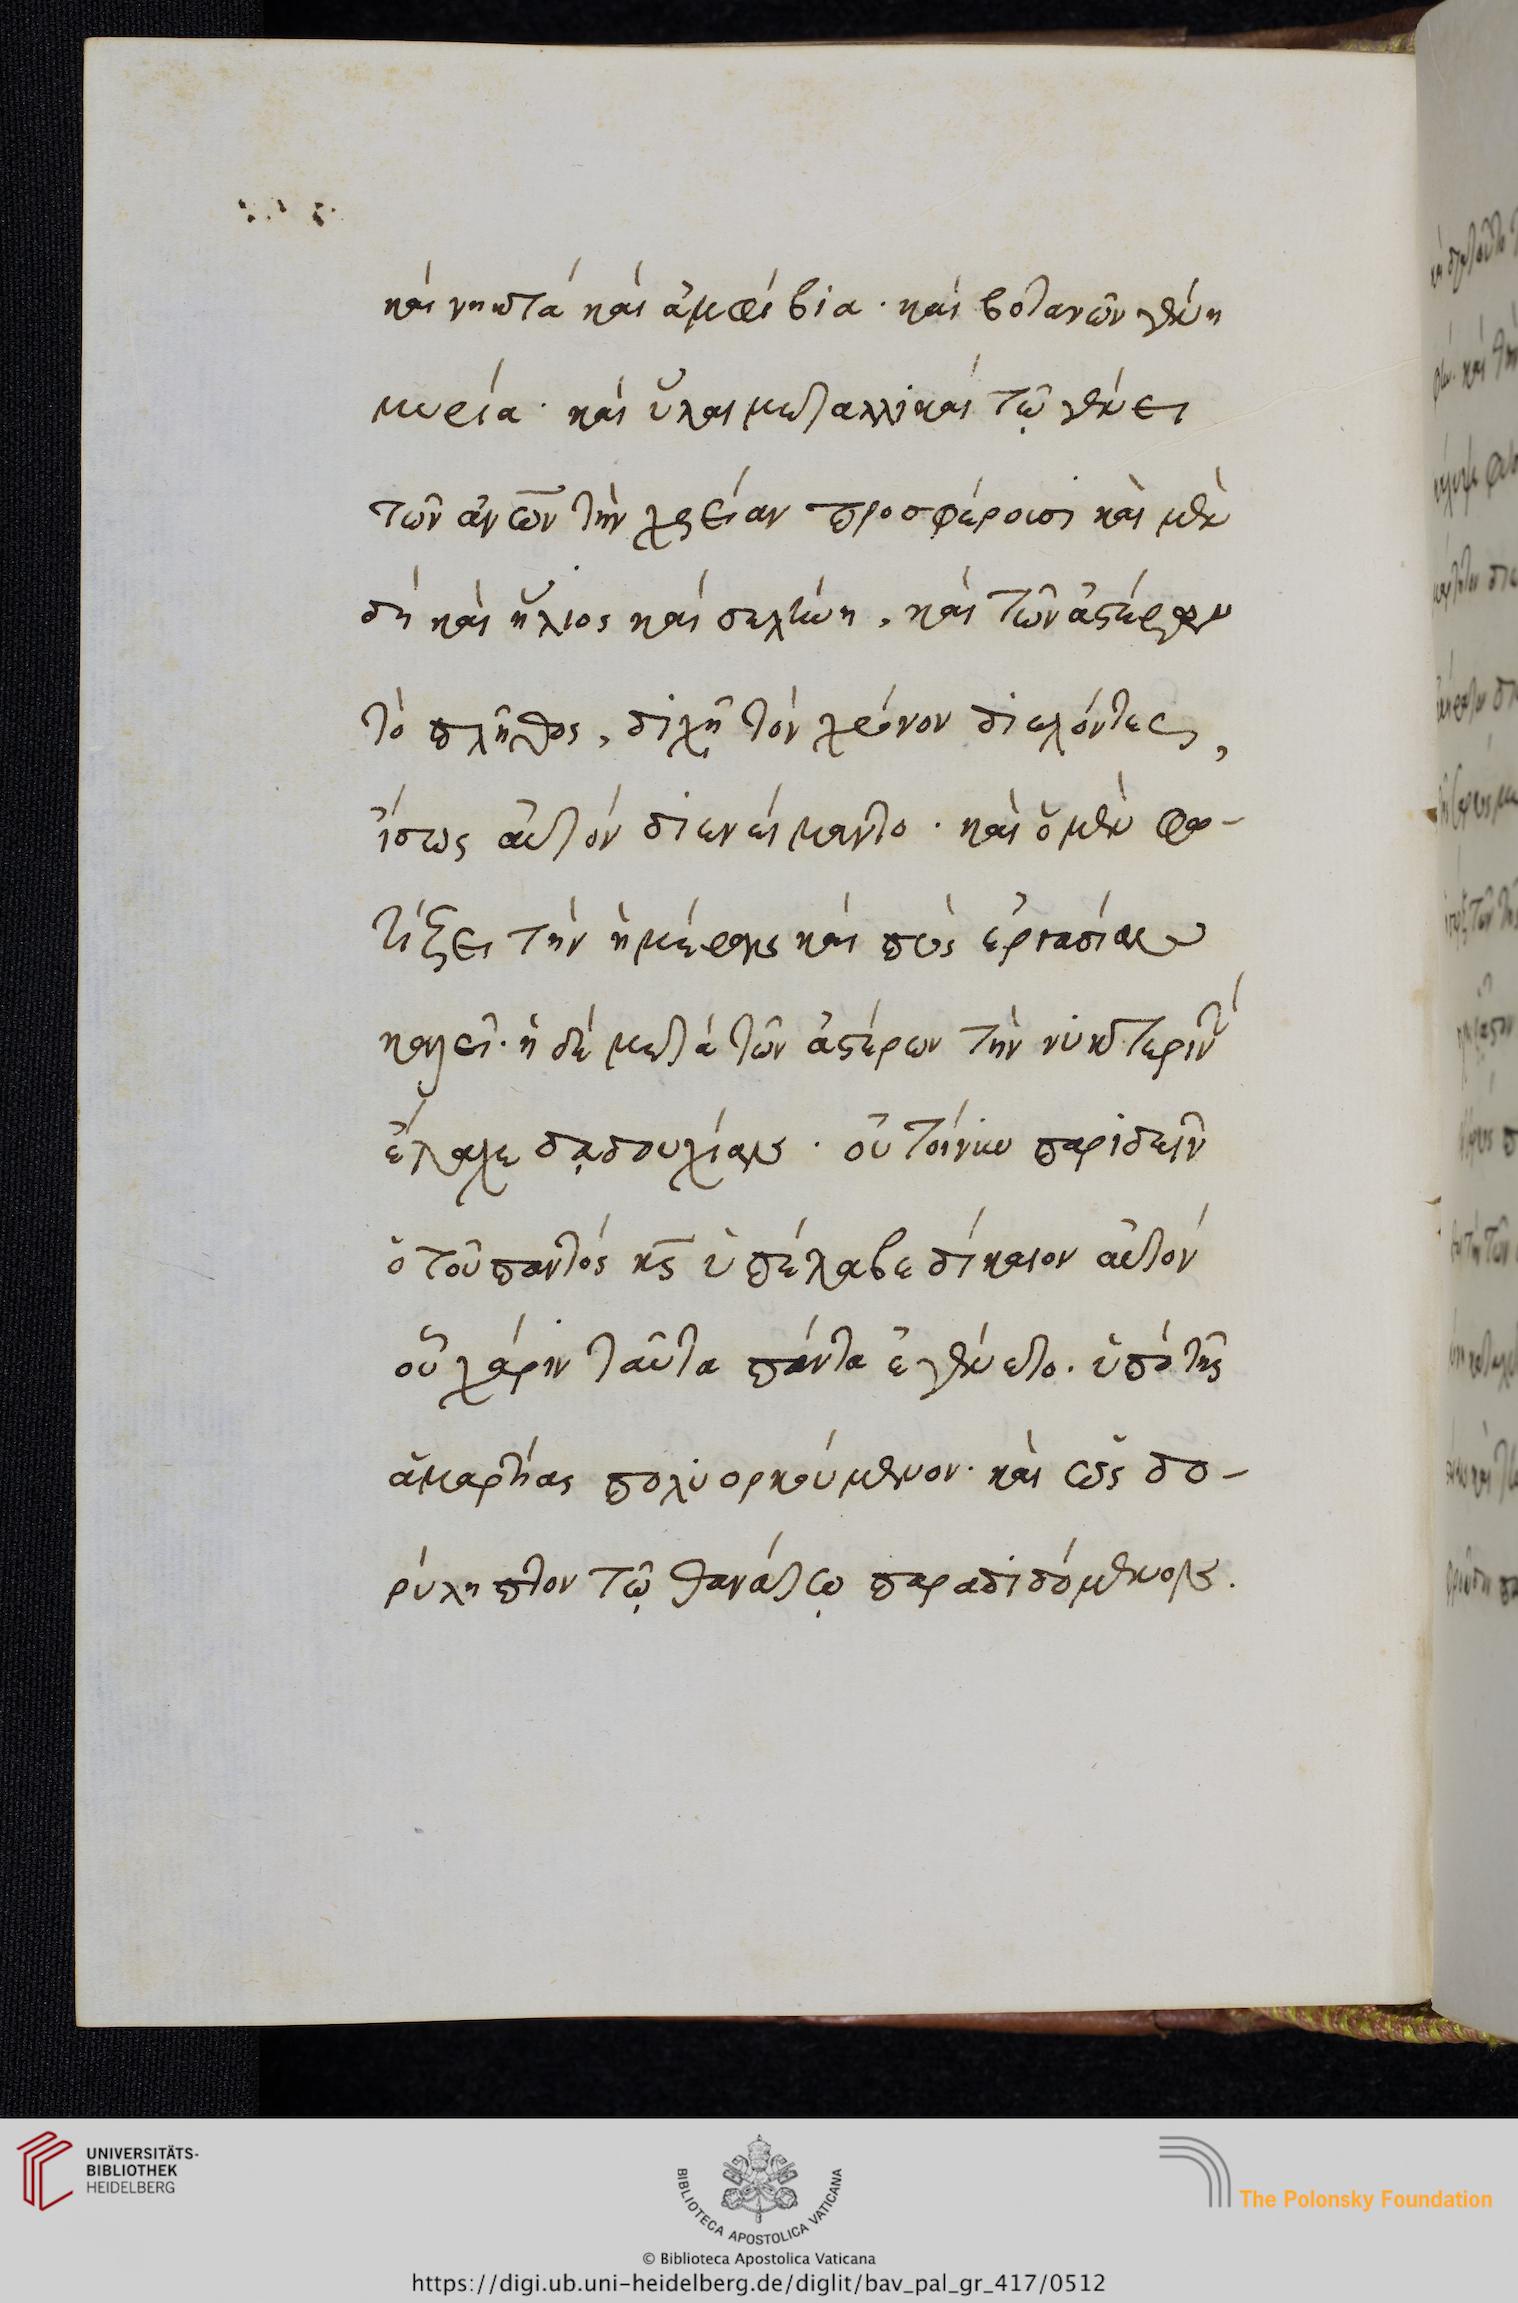 καὶ νηκτὰ καὶ ἀμφίβια· καὶ βοτανῶν γένη
μυρία· καὶ ὕλαι μεταλλικαὶ τῷ γένει
τῶν ἀν̅ω̅ν τὴν χρείαν προσφέρουσι καὶ μὲν
δὴ καὶ ἥλιος καὶ σελήνη, καὶ τῶν ἀστέρων
τὸ πλῆθος, διχῇ τὸν χρόνον διελόντες,
ἴσως αὐτὸν διενείμαντο· καὶ ὁ μὲν φω-
τίζει τὴν ἡμέραν καὶ πρὸς ἐργασίαν
καλεῖ· ἡ δὲ μετὰ τῶν ἀστέρων τὴν νυκτερινὴ
ἔλαχε δᾳδουχίαν· οὐ τοίνυν παριδεῖν
ὁ τοῦ παντὸς κ̅ς̅ ὑπέλαβε δίκαιον αὐτὸν
οὗ χάριν ταῦτα πάντα ἐγένετο· ὑπὸ τῆς
ἁμαρτίας πολυορκούμενον· καὶ ὡς δο-
ρύληπτον τῷ θανάτῳ παραδιδόμενον.
UNIVERSITÄTS-
BIBLIOTHEK
HEIDELBERG
BIBLIOTECA APOSTOLICA VATICANA
The Polonsky Foundation
© Biblioteca Apostolica Vaticana
https://digi.ub.uni-heidelberg.de/diglit/bav_pal_gr_417/0512